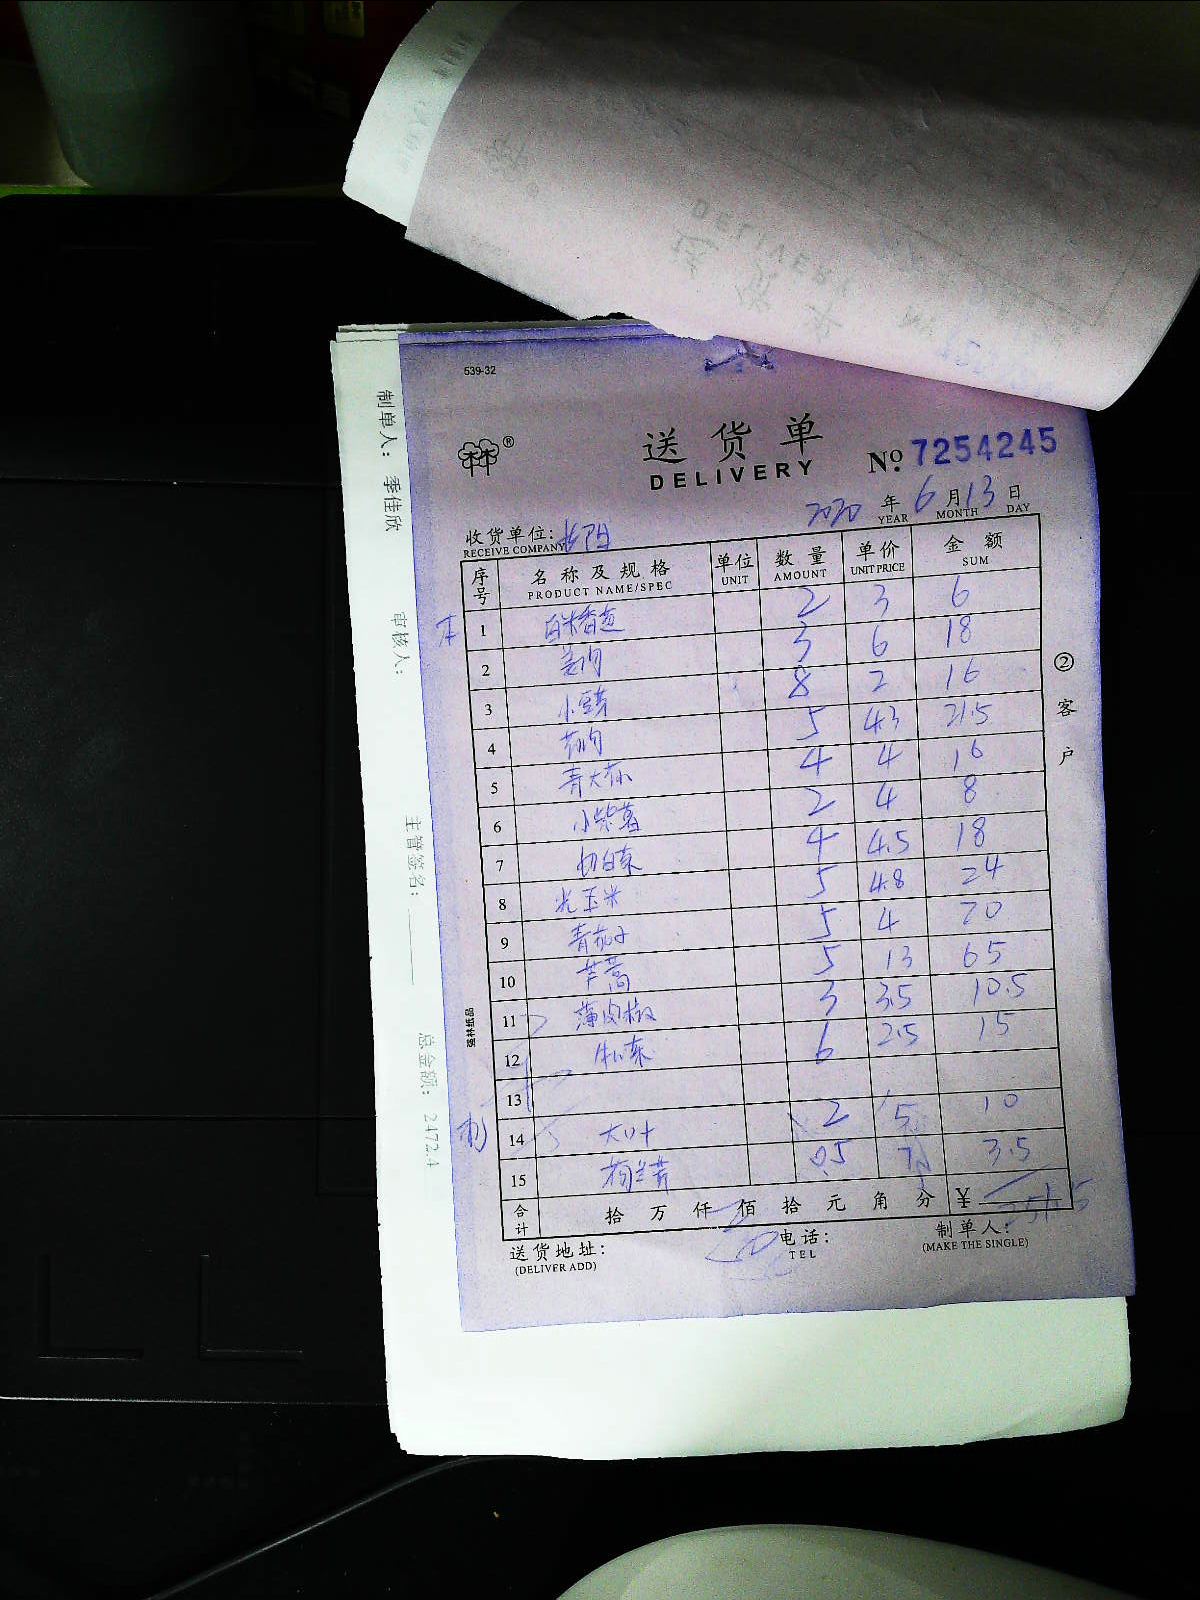 539-32
林 ®
送货单
DELIVERY
No. 7254245
2020 年 6 月 13 日
YEAR MONTH DAY
收货单位:
RECEIVE COMPANY
序号 名称及规格 单位 数量 单价 金额
PRODUCT NAME/SPEC UNIT AMOUNT UNIT PRICE SUM
1 白米香芝 2 3 6
2 姜肉 3 6 18
3 小豆芽 8 2 16
4 5 4.3 21.5
5 青大 4 4 16
6 小紫薯 2 4 8
7 4 4.5 18
8 光玉米 5 4.8 24
9 青茄子 5 4 20
10 芦蒿 5 13 65
11 薄皮椒 3 3.5 10.5
12 6 2.5 15
13
14 大叶 2 5 10
15 0.5 7 3.5
合计 拾万仟佰拾元角分 ¥
送货地址:
(DELIVER ADD)
电话:
TEL
制单人:
(MAKE THE SINGLE)
② 客户
强林纸品
制单人: 季佳欣 审核人: 主管签名: 总金额: 2472.4
DELIVERY